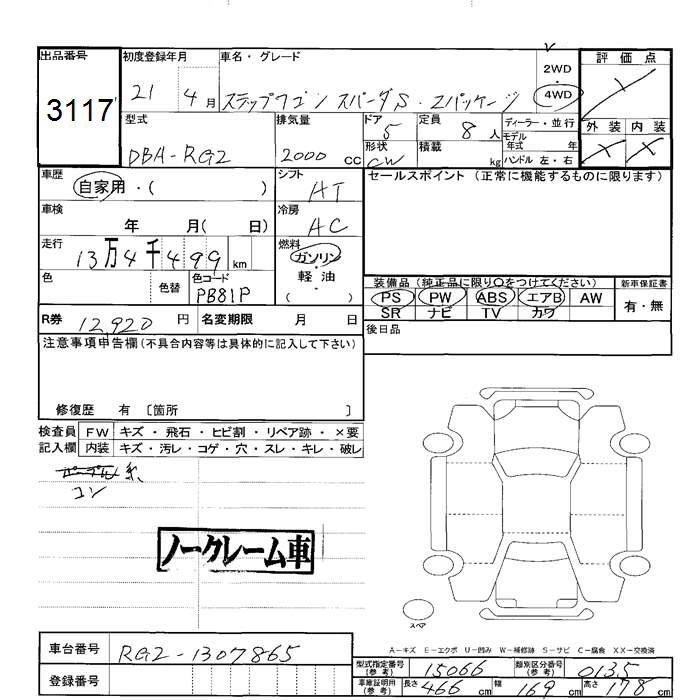 出品番号 初度登録年月 車名・グレード 評価点
3117 21 4月 ステップワゴン スパーダS・Zパッケージ 2WD 4WD
外装 内装
型式 排気量 ドア 定員 ディーラー・並行
DBA-RG2 2000 cc 5 8人 モデル年式 年
形状 CW 積載 kg ハンドル 左・右
車歴 シフト セールスポイント(正常に機能するものに限ります)
自家用・( ) AT
車検 冷房
年 月( 日) AC
走行 燃料
13万4千499km ガソリン・軽油・( )
色 色替 色コード 装備品(純正品に限り○をつけてください) 新車保証書
PB81P PS PW ABS エアB AW 有・無
SR ナビ TV カワ
R券 12,920円 名変期限 月 日 後日品
注意事項申告欄(不具合内容等は具体的に記入して下さい)
修復歴 有 〔箇所 〕
検査員 FW キズ・飛石・ヒビ割・リペア跡・×要
記入欄 内装 キズ・汚レ・コゲ・穴・スレ・キレ・破レ
コン
ノークレーム車
スペア
A-キズ E-エクボ U-凹み W-補修跡 S-サビ C-腐食 XX-交換済
車台番号 RG2-1307865 型式指定番号(参考) 15066 類別区分番号(参考) 0135
登録番号 車庫証明用(参考) 長さ 466cm 幅 169cm 高さ 178cm